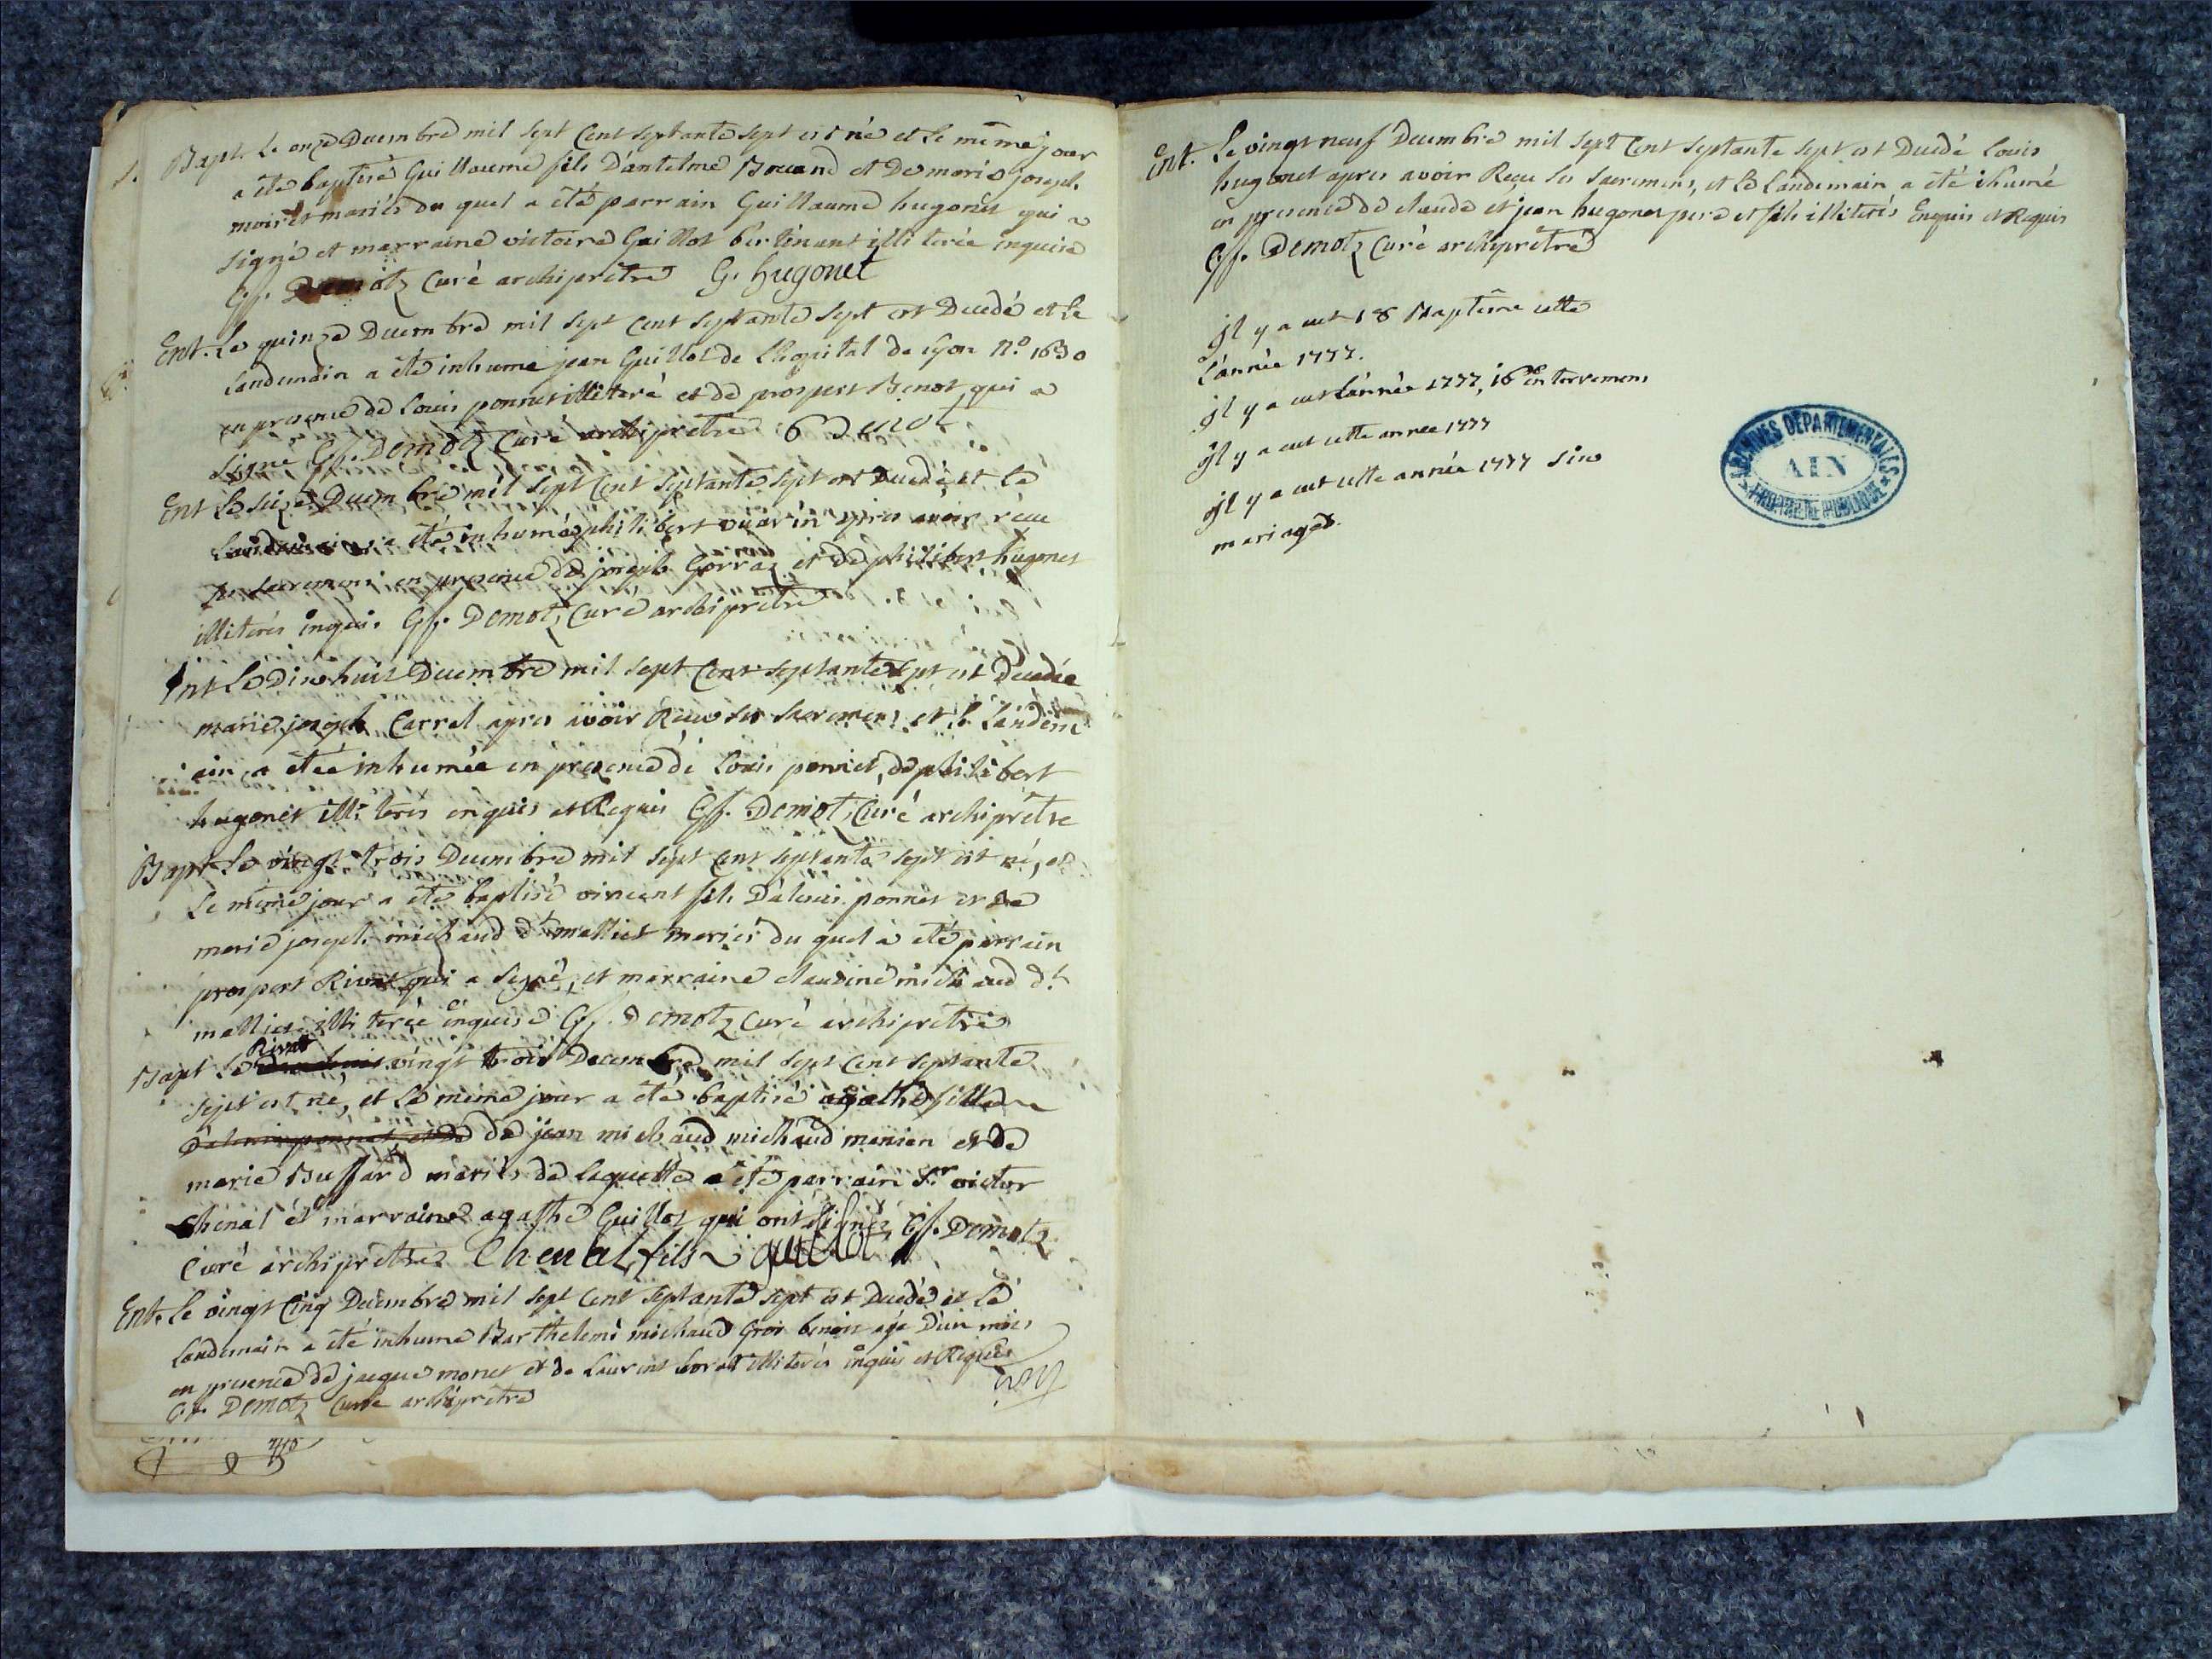 Bapt. Le onze Decembre mil sept Cent septante sept est né et le même jour
a été baptisé Guillaume fils D'antelme Bouand et De marie joseph
mariés du quel a été parrain Guillaume hugonet qui a
signé et marraine victoire Guillot illiterée inquise
Gf. Demotz Curé archiprêtre G. hugonet
Ent. Le quinze Decembre mil sept Cent septante sept est Decedé et le
landemain a été inhumé jean Guillot de l'hopital de lyon N.° 1630
en presence de Louis ponnet illiteré et de prospert Benot qui a
signé Gf. Demotz Curé archiprêtre Benot
Ent Le seize Decembre mil sept Cent septante sept est Decedé et le
landemain a été inhumé philibert vuarin apres avoir réçu
ses sacremens en presence de joseph Gorraz et de philibert hugonet
illiterés inquis Gf. Demotz Curé archiprêtre
Ent Le Dixhuit Decembre mil sept Cent septante sept est Decedée
marie joseph Carrel apres avoir Reçu ses sacremens et le landem
ain a étée inhumée en presence de Louis ponnet, de philibert
hugonet illiterés enquis et Requis Gf. Demotz Curé archiprêtre
Bapt Le vingt trois Decembre mil sept Cent septante sept est né, et
le même jour a été baptisé vincent fils D'alouis ponnet et de
marie joseph michaud d.t malliet mariés du quel a été parrain
prospert Rivat qui a signé, et marraine claudine michaud d.t
malliet illiterée inquise Gf. Demotz Curé archiprêtre
Rivat
Bapt Le vingt trois Decembre mil sept Cent septante
sept est né, et le même jour a été baptisé agathe fille
D'alouis ponnet et de de jean michaud michaud manien et de
marie Buffard mariés de laquelle a été parrain S.r victor
Chenal et marraine agathe Guillot qui ont signés Gf. Demotz
Curé archiprêtre Chenal fils guillot
Ent. Le vingt Cinq Decembre mil sept Cent septante sept est Decedé et le
landemain a été inhumé Barthelemi michaud Gros benoit agé D'un mois
en presence de jacque monet et de Laurent borat illiterés inquis et Requis
Gf. Demotz Curé archiprêtre
Ent. Le vingt neuf Decembre mil sept Cent septante sept est Decedé Louis
hugonet apres avoir Reçu ses sacremens, et le landemain a été ihumé
en presence de claude et jean hugonet pere et fils illiterés Enquis et Requis
Gf. Demotz Curé archiprêtre
jl y a eut 18 Baptême cette
l'année 1777.
jl y a eut l'année 1777, 16 enterremens
jl y a eut cette annee 1777
jl y a eut cette année 1777 six
mariages.
ARCHIVES DEPARTEMENTALES
AIN
PROPRIETE PUBLIQUE